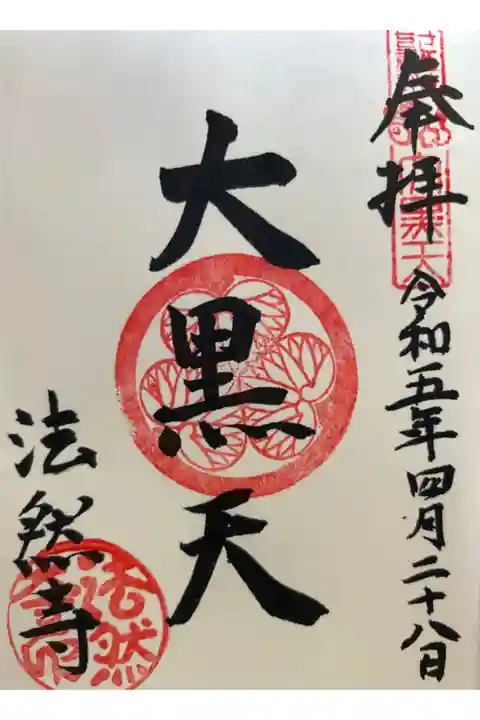 奉拝
令和五年四月二十八日
大黒天
法然寺